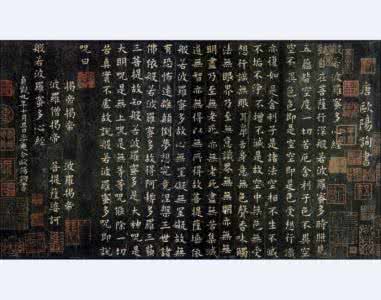 唐歐陽詢書
觀自在菩薩行深般若波羅蜜多時照見
五蘊皆空度一切苦厄舍利子色不異空
空不異色色即是空空即是色受想行識
亦復如是舍利子是諸法空相不生不滅
不垢不淨不增不減是故空中無色無受
想行識無眼耳鼻舌身意無色聲香味觸
法無眼界乃至無意識界無無明亦無無
明盡乃至無老死亦無老死盡無苦集滅
道無智亦無得以無所得故菩提薩埵依
般若波羅蜜多故心無罣礙無罣礙故無
有恐怖遠離顛倒夢想究竟涅槃三世諸
佛依般若波羅蜜多故得阿耨多羅三藐
三菩提故知般若波羅蜜多是大神呪是
大明呪是無上呪是無等等呪能除一切
苦真實不虛故說般若波羅蜜多呪即說
呪曰
揭帝揭帝 波羅揭帝
波羅僧揭帝 菩提薩婆訶
般若波羅蜜多心經
貞觀九年十月旦日率更令歐陽詢書